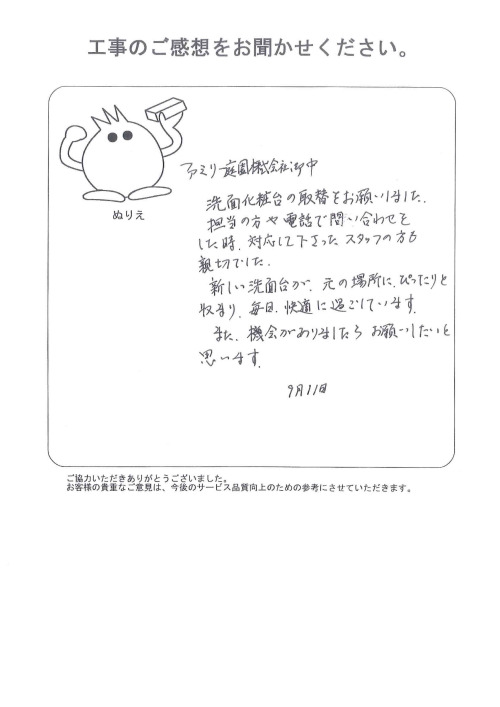 工事のご感想をお聞かせください。
ぬりえ
ファミリー庭園株式会社御中
洗面化粧台の取替をお願いしました。
担当の方や電話で問い合わせを
した時、対応して下さった スタッフの方も
親切でした。
新しい洗面台が、元の場所に、ぴったりと
収まり、毎日、快適に過ごしています。
また、機会がありましたら お願いしたいと
思います。
9月11日
ご協力いただきありがとうございました。
お客様の貴重なご意見は、今後のサービス品質向上のための参考にさせていただきます。